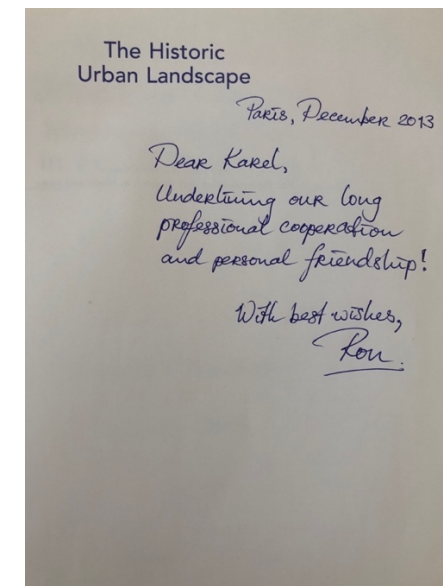 The Historic
Urban Landscape
Paris, December 2013
Dear Karel,
Underlining our long
professional cooperation
and personal friendship!
With best wishes,
Ron.